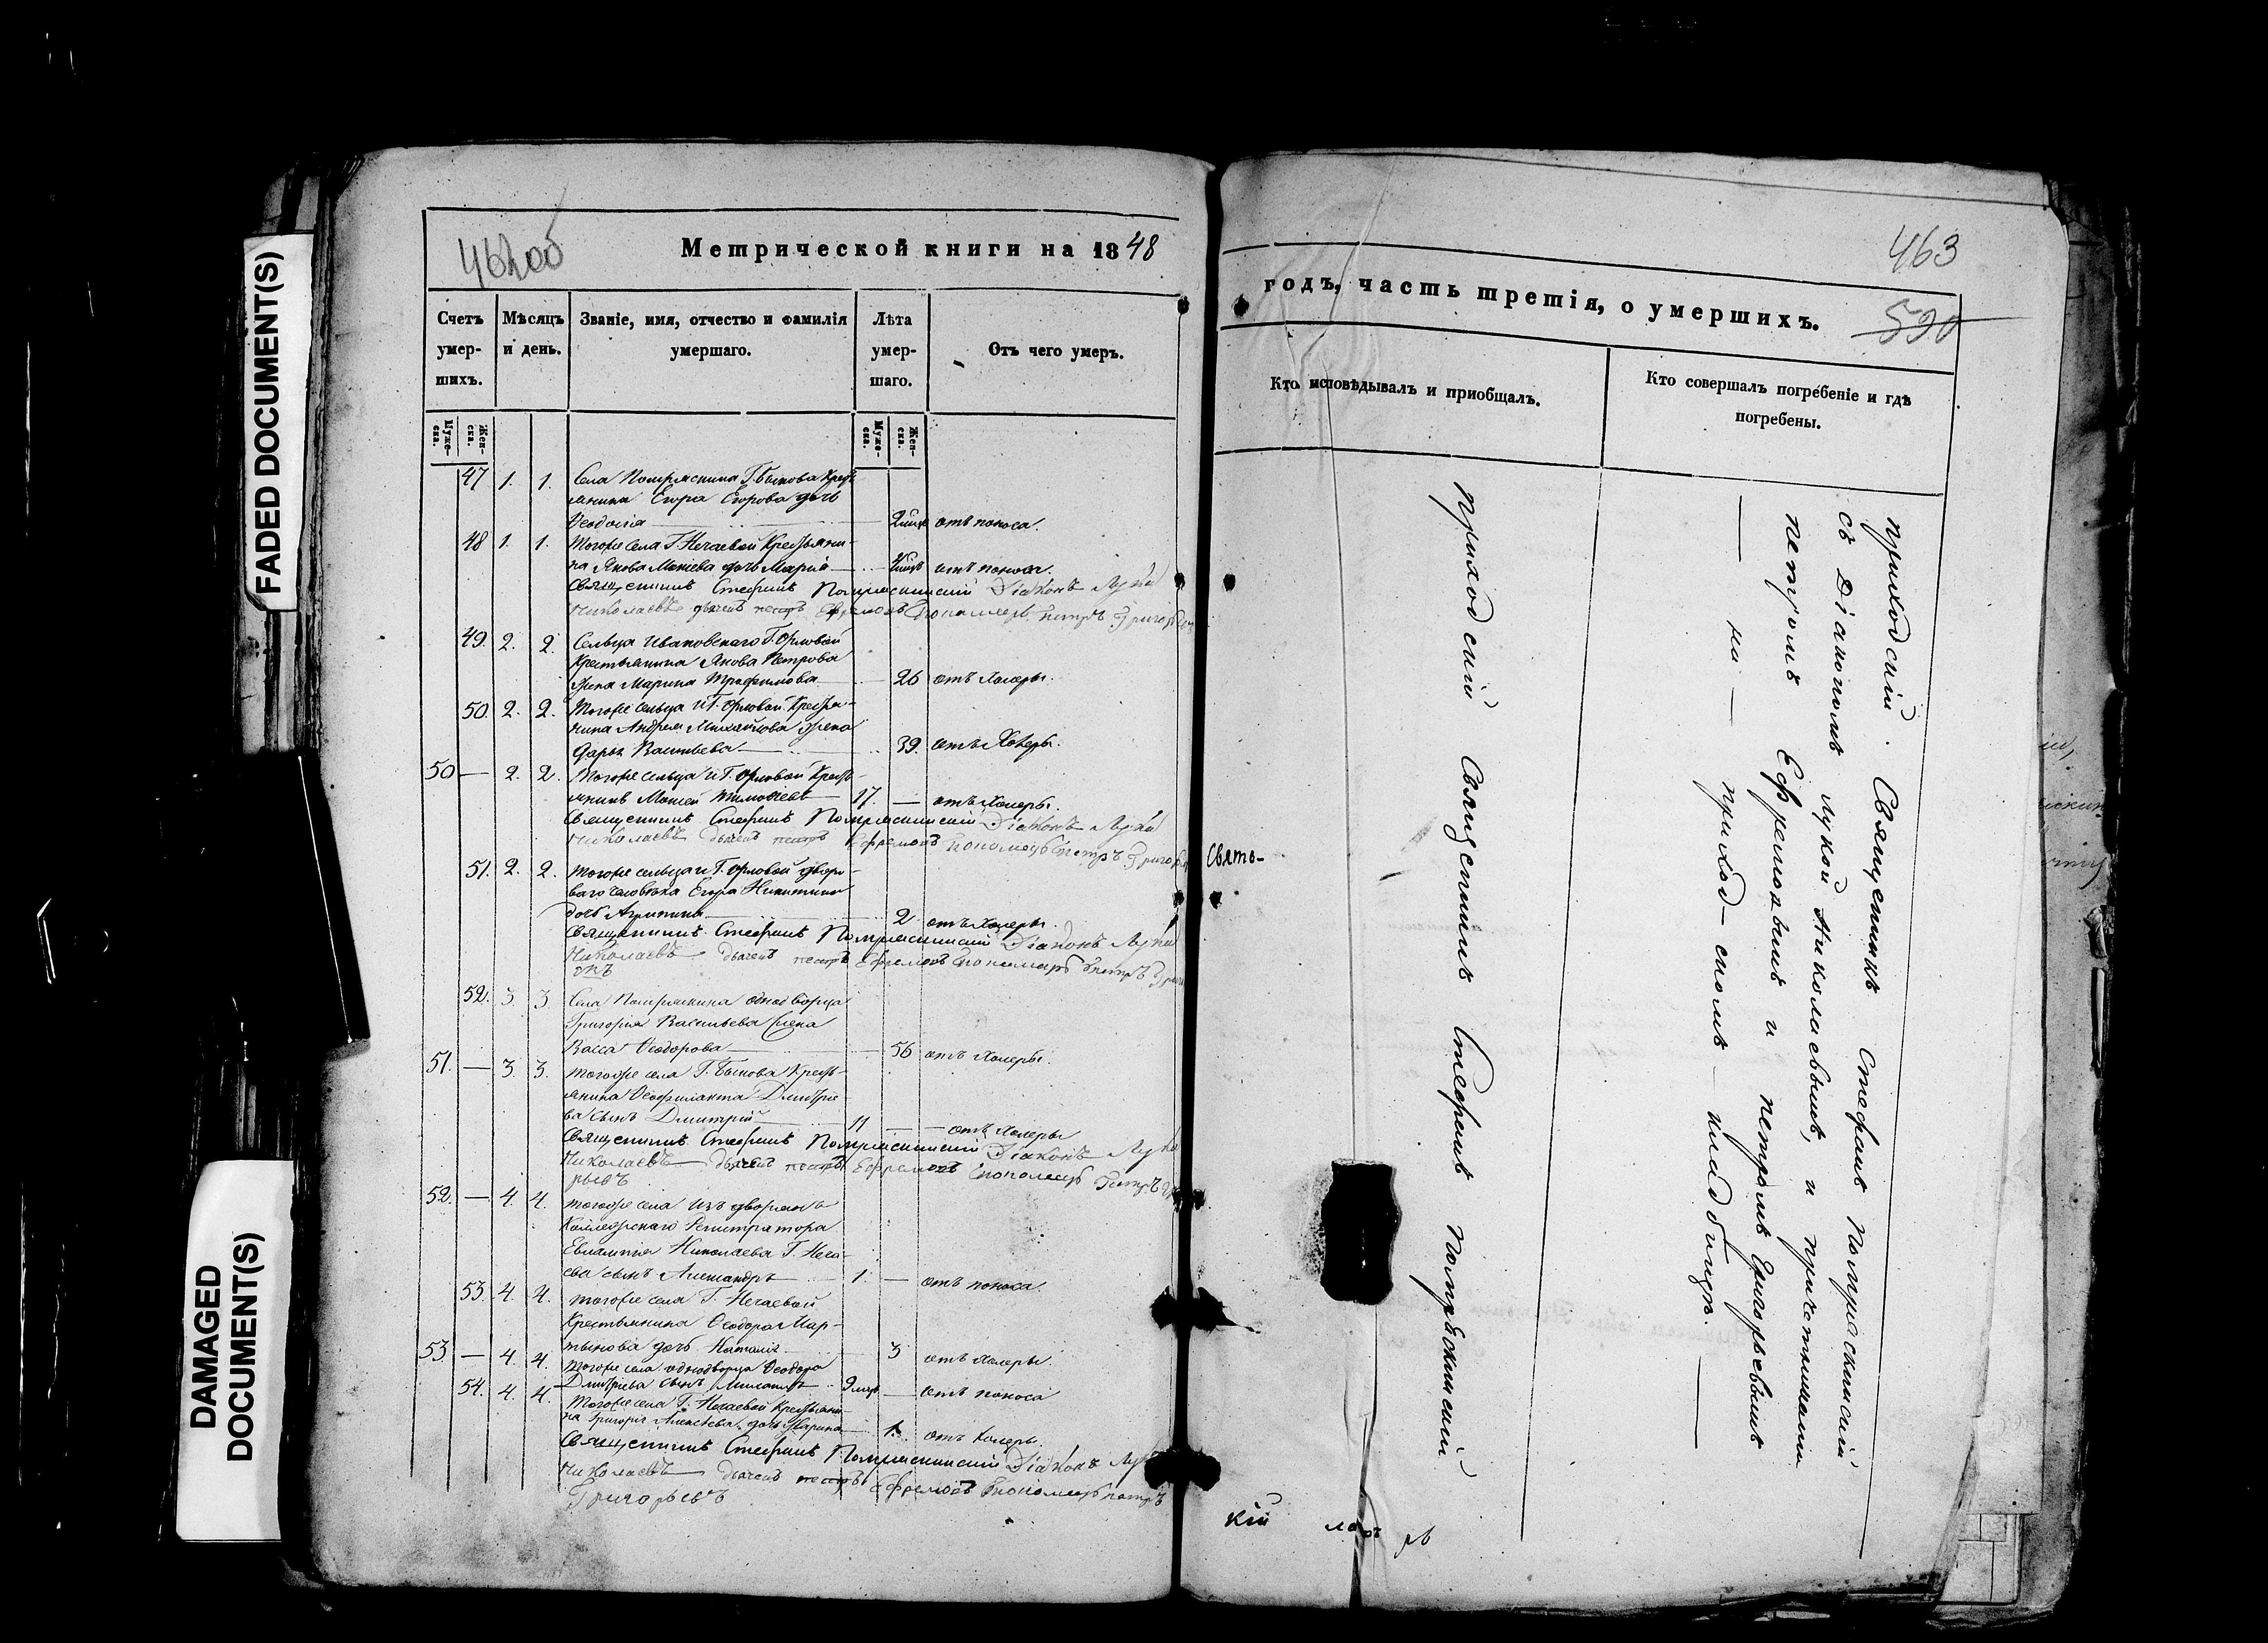 FADED DOCUMENT(S)
DAMAGED
DOCUMENT(S)
462об
Метрической книги на 1848
Счетъ умер-шихъ.
Мѣсяцъ и день.
Званіе, имя, отчество и фамилія умершаго.
Лѣта умер-шаго.
Отъ чего умеръ.
Муже-ска.
Жен-ска.
Муже-ска.
Жен-ска.
47 1. 1. Села Потряскина Г. Быкова Кресть
янина Егора Егорова дочь
Ѳеодосія отъ поноса.
48 1. 1. Тогоже села Г. Нечаевой Крестьяни-
на Якова дочь Марія отъ поноса.
Священникъ Стефанъ Потряскинскій Діаконъ Лука
Николаевъ дьячекъ петръ Ефремовъ Пономарь петръ Григорьевъ
49. 2. 2. Сельца Ивановскаго Г. Орловой
Крестьянина Якова Петрова
жена Марина Трофимова 26 отъ Холеры.
50. 2. 2. Тогоже сельца и Г. Орловой Крестья-
нина Андрея Михайлова жена
Дарья Васильева 39. отъ Холеры.
50 — 2. 2. Тогоже сельца и Г. Орловой Кресть-
янинъ Мокей Тимофеевъ 17. — отъ Холеры.
Священникъ Стефанъ Потряскинскій Діаконъ Лука
Николаевъ дьячекъ петръ Ефремовъ пономарь петръ Григорь
51. 2. 2. Тогоже сельца и Г. Орловой дворо-
ваго человѣка Егора Никитина
дочь Агрипина 2 отъ Холеры.
Священникъ Стефанъ Потряскинскій Діаконъ Лука
Николаевъ дьячекъ петръ Ефремовъ пономарь петръ Григ
52. 3. 3 Села Потряскина однодворца
Григорія Васильева жена
Васса Ѳеодорова 56 отъ Холеры.
51. — 3. 3. Тогоже села Г. Быкова Кресть-
янина Ѳеофилакта Дмитріе-
ва сынъ Дмитрій 11 — отъ Холеры
Священникъ Стефанъ Потряскинскій Діаконъ Лука
Николаевъ дьячекъ петръ Ефремовъ пономарь Петръ Гр
рьевъ
52. — 4. 4. Тогоже села изъ дворянъ
Коллежскаго Регистратора
Евлампія Николаева Г. Неча-
ева сынъ Александръ 1. — отъ поноса.
53. 4. 4. Тогоже села Г. Нечаевой
Крестьянина Ѳеодора Мар-
тынова дочь Наталія 3 отъ Холеры.
53. — 4. 4. Тогоже села однодворца Ѳеодора
Дмитріева сынъ Михаилъ — отъ поноса
54. 4. 4. Тогоже села Г. Нечаевой Крестьяни-
на Григорія Алексѣева дочь Марина отъ Холеры.
Священникъ Стефанъ Потряскинскій Діаконъ Лука
Николаевъ дьячекъ петръ Ефремовъ пономарь петръ
Григорьевъ
463
590
годъ, часть третія, о умершихъ.
Кто исповѣдывалъ и приобщалъ.
Кто совершалъ погребеніе и гдѣ погребены.
приходскій Священникъ Стефанъ Потряскинскій
приходскій. Священникъ Стефанъ Потряскинскій
съ Діакономъ Лукой Николаевымъ, и причетниками
петромъ Ефремовымъ и петромъ Григорьевымъ
— на — приход-скомъ — кладбищѣ. —
Свято-
кій